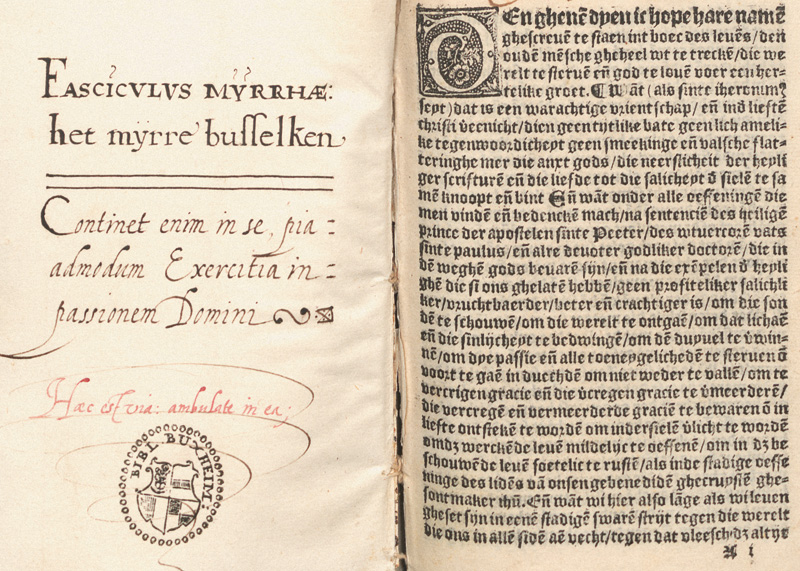 FASCICVLVS MYRRHÆ:
het myrre busselken
Continet enim in se, pia =
admodum Exercitia in =
passionem Domini
Hæc est via: ambulate in ea;
BIBL. BUXHEIM:
En ghenē dyen ic hope hare namē
ghescreuē te staen int boec des leuēs/den
oudē mēsche gheheel wt te treckē/die we
relt te steruē eñ god te louē voer een her-
telike groet. ¶ Wāt (als sinte iheronimꝰ
seyt) dat is een warachtige vrientschap/ eñ ind lieftē
christi vēenicht/dien geen tytlike bate geen lich ameli-
ke tegenwoordicheyt geen smeekinge eñ valsche flat-
teringhe mer die anxt gods/die neersticheit der heyli
ger scrifturē eñ die liefde tot die salicheyt ð sielē te sa
mē knoopt eñ bint Eñ wāt onder alle oeffeningē die
men vindē eñ bedenckē mach/na sentenciē des heiligē
prince der apostelen sinte Peeter/des wtuercorē vats
sinte paulus/eñ alre deuoter godliker doctorē/die in
dē weghē gods beuarē sijn/eñ na die exēpelen ð heyli
ghē die si ons ghelatē hebbē/geen profiteliker salichli
ker/vruchtbaerder/beter eñ crachtiger is/om die son
dē te schouwē/om die werelt te ontgaē/om dat lichaē
eñ die sinlijcheyt te bedwingē/om dē duyuel te v̄win-
nē/om dye passie eñ alle toeneygelichedē te steruen ō
voort te gaē in duechdē om niet weder te vallē/om te
vercrigen gracie eñ die v̄cregen gracie te v̄meerderē/
die vercregē eñ vermeerderde graciē te bewaren ō in
liefte ontstekē te wordē om indersielē v̄licht te wordē
omdꝫ werckēde leuē mildelijc te oeffenē/om in dꝫ be
schouwēde leuē soetelic te rustē/als inde stadige oeffe
ninge des lidēs vā onsen gebenedidē ghecruystē ghe-
sontmaker ihū. Eñ wāt wi hier also lāge als wi leuen
gheset sijn in eenē stadigē swarē strijt tegen die werelt
die ons in allē sidē aē vecht/tegen dat vleesch dꝫ altijt
A i